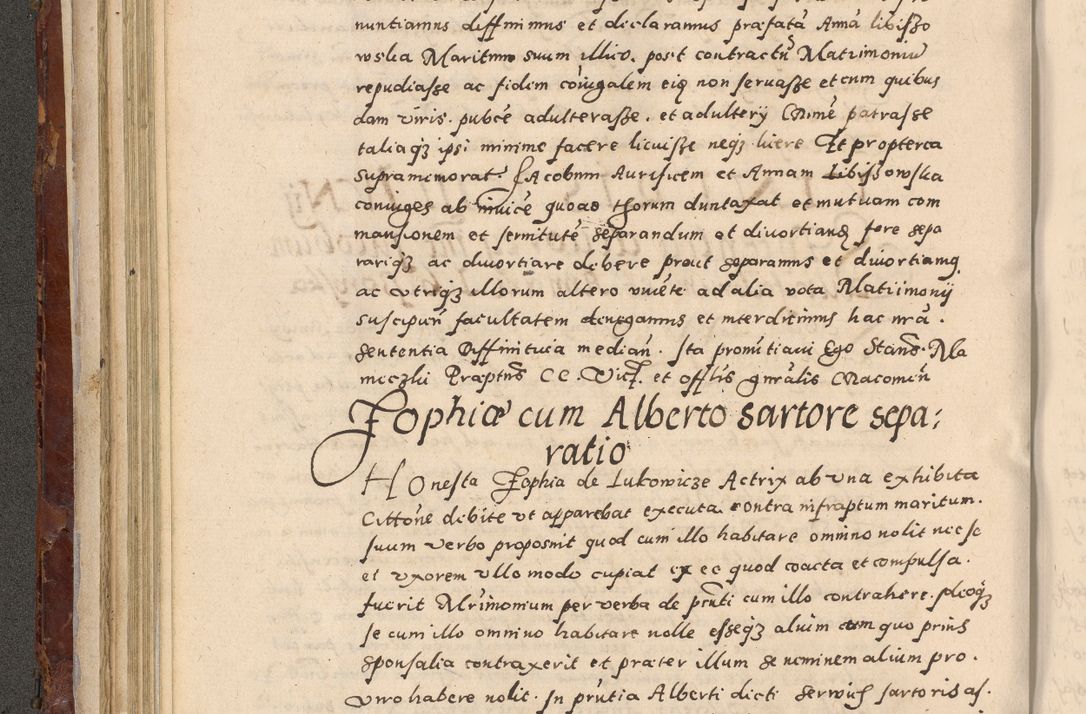 nuntiamus diffinimus et declaramus præfatā Annā libiſzo
wska Maritum suum illico post contractū Matrimoniū
repudiaſse ac fidem coiugalem eiq non seruaſse et cum quibus
dam viris pubce adulteraſse et adulterij Crime patraſse
taliaqȝ ipsi minime facere licuiſse neqȝ licere Et propterea
supramemorat Jacobum Aurificem et Annam Libiſzowſka
coniuges ab inuice quoad thorum duntaxat et mutuam com
mansionem et seruitute separandum et diuortiand fore sepa
rariqȝ ac diuortiare debere prout separamus et diuortiamq
ac vtriqȝ illorum altero viuete ad alia vota Matrimonij
suscipien facultatem denegamus et interdicimus hac nrā .
sententia Diffinitiua median . Ita pronūtiaui Ego Stans Ma
meczki Præptus CC. Vict et offtis gnralis Cracomen
Zophiæ cum Alberto sartore sepa:
ratio
HOnesta Zophia de Lukowicze Actrix ab vna exhibita
Cittone debite vt apparebat executa contra infraptum maritum .
suum verbo proposuit quod cum illo habitare omnino nolit nec se
et vxorem vllo modo cupiat ex eo quod coacta et compulsa .
fuerit Mrimonium per verba de pnti cum illo contrahere . Ideoqȝ
se cum illo omnino habitare nolle eſseqȝ alium cum quo prius
sponsalia contraxerit et præter illum se neminem alium pro .
viro habere nolit . In pntia Alberti dicti Serwich sartoris aſ.